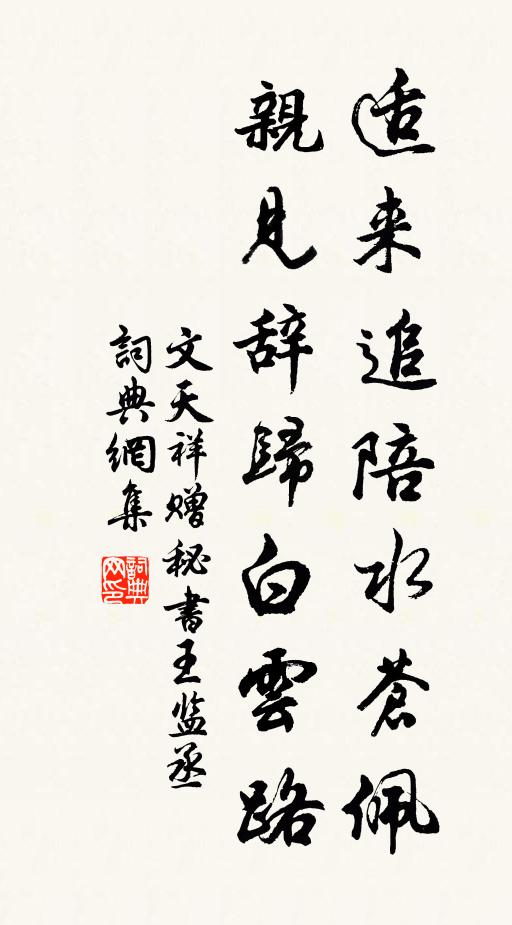 适来追陪水蒼佩
親見辞歸白雲路
文天祥赠秘書王监丞
詞典網集
詞典网印